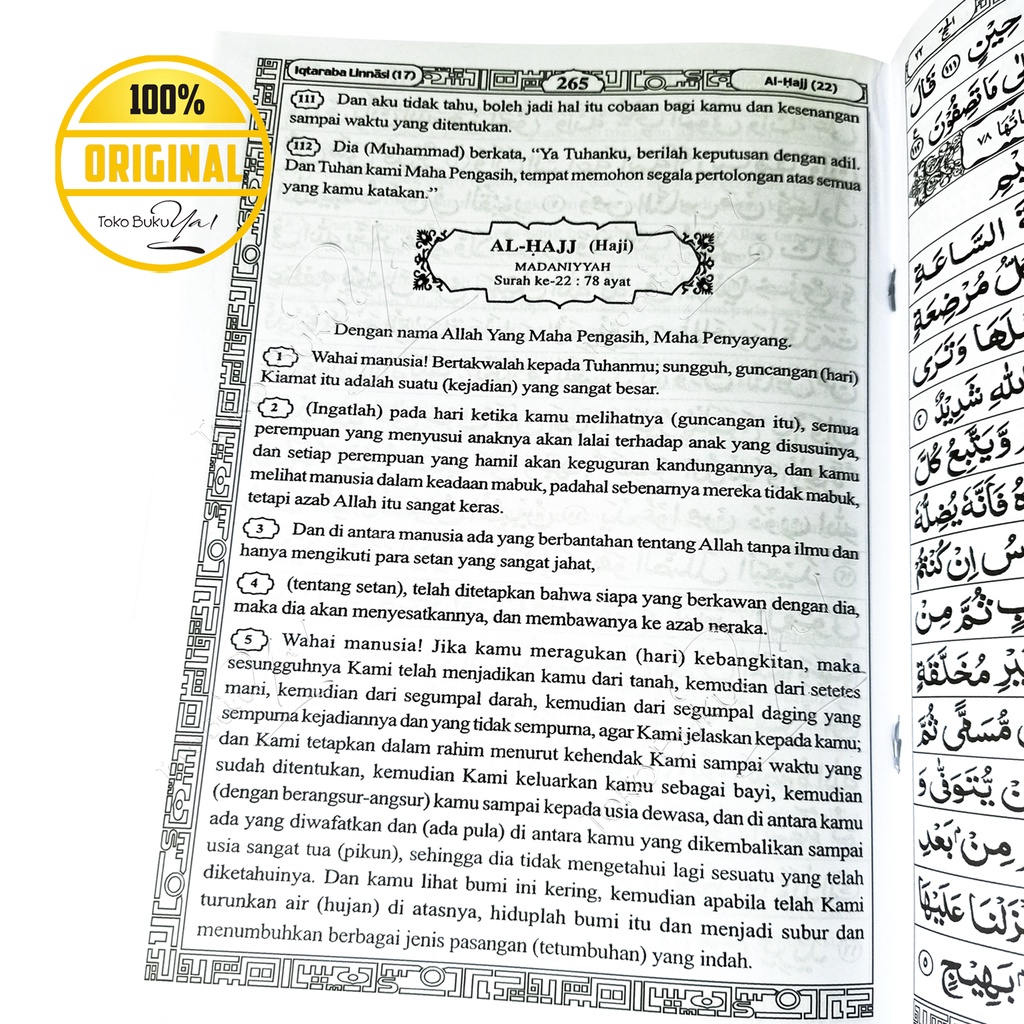 100%
ORIGINAL
Toko Buku Ya!
Iqtaraba Linnāsi (17)
265
Al-Ḥajj (22)
111 Dan aku tidak tahu, boleh jadi hal itu cobaan bagi kamu dan kesenangan
sampai waktu yang ditentukan.
112 Dia (Muhammad) berkata, “Ya Tuhanku, berilah keputusan dengan adil.
Dan Tuhan kami Maha Pengasih, tempat memohon segala pertolongan atas semua
yang kamu katakan.”
AL-ḤAJJ (Haji)
MADANIYYAH
Surah ke-22 : 78 ayat
Dengan nama Allah Yang Maha Pengasih, Maha Penyayang.
1 Wahai manusia! Bertakwalah kepada Tuhanmu; sungguh, guncangan (hari)
Kiamat itu adalah suatu (kejadian) yang sangat besar.
2 (Ingatlah) pada hari ketika kamu melihatnya (guncangan itu), semua
perempuan yang menyusui anaknya akan lalai terhadap anak yang disusuinya,
dan setiap perempuan yang hamil akan keguguran kandungannya, dan kamu
melihat manusia dalam keadaan mabuk, padahal sebenarnya mereka tidak mabuk,
tetapi azab Allah itu sangat keras.
3 Dan di antara manusia ada yang berbantahan tentang Allah tanpa ilmu dan
hanya mengikuti para setan yang sangat jahat,
4 (tentang setan), telah ditetapkan bahwa siapa yang berkawan dengan dia,
maka dia akan menyesatkannya, dan membawanya ke azab neraka.
5 Wahai manusia! Jika kamu meragukan (hari) kebangkitan, maka
sesungguhnya Kami telah menjadikan kamu dari tanah, kemudian dari setetes
mani, kemudian dari segumpal darah, kemudian dari segumpal daging yang
sempurna kejadiannya dan yang tidak sempurna, agar Kami jelaskan kepada kamu;
dan Kami tetapkan dalam rahim menurut kehendak Kami sampai waktu yang
sudah ditentukan, kemudian Kami keluarkan kamu sebagai bayi, kemudian
(dengan berangsur-angsur) kamu sampai kepada usia dewasa, dan di antara kamu
ada yang diwafatkan dan (ada pula) di antara kamu yang dikembalikan sampai
usia sangat tua (pikun), sehingga dia tidak mengetahui lagi sesuatu yang telah
diketahuinya. Dan kamu lihat bumi ini kering, kemudian apabila telah Kami
turunkan air (hujan) di atasnya, hiduplah bumi itu dan menjadi subur dan
menumbuhkan berbagai jenis pasangan (tetumbuhan) yang indah.
الحج ٢٢
حِيْنٍ ١١١ قَالَ
مَا تَصِفُوْنَ ١١٢
٧٨
السَّاعَةِ
كُلُّ مُرْضِعَةٍ
وَتَرَى
اللّٰهِ شَدِيْدٌ ٢
وَّيَتَّبِعُ كُلَّ
فَاَنَّهٗ يُضِلُّهٗ
اِنْ كُنْتُمْ
ثُمَّ مِنْ
مُخَلَّقَةٍ
مُّسَمًّى ثُمَّ
يُّتَوَفّٰى وَ
مِنْۢ بَعْدِ
عَلَيْهَا
بَهِيْجٍ ٥